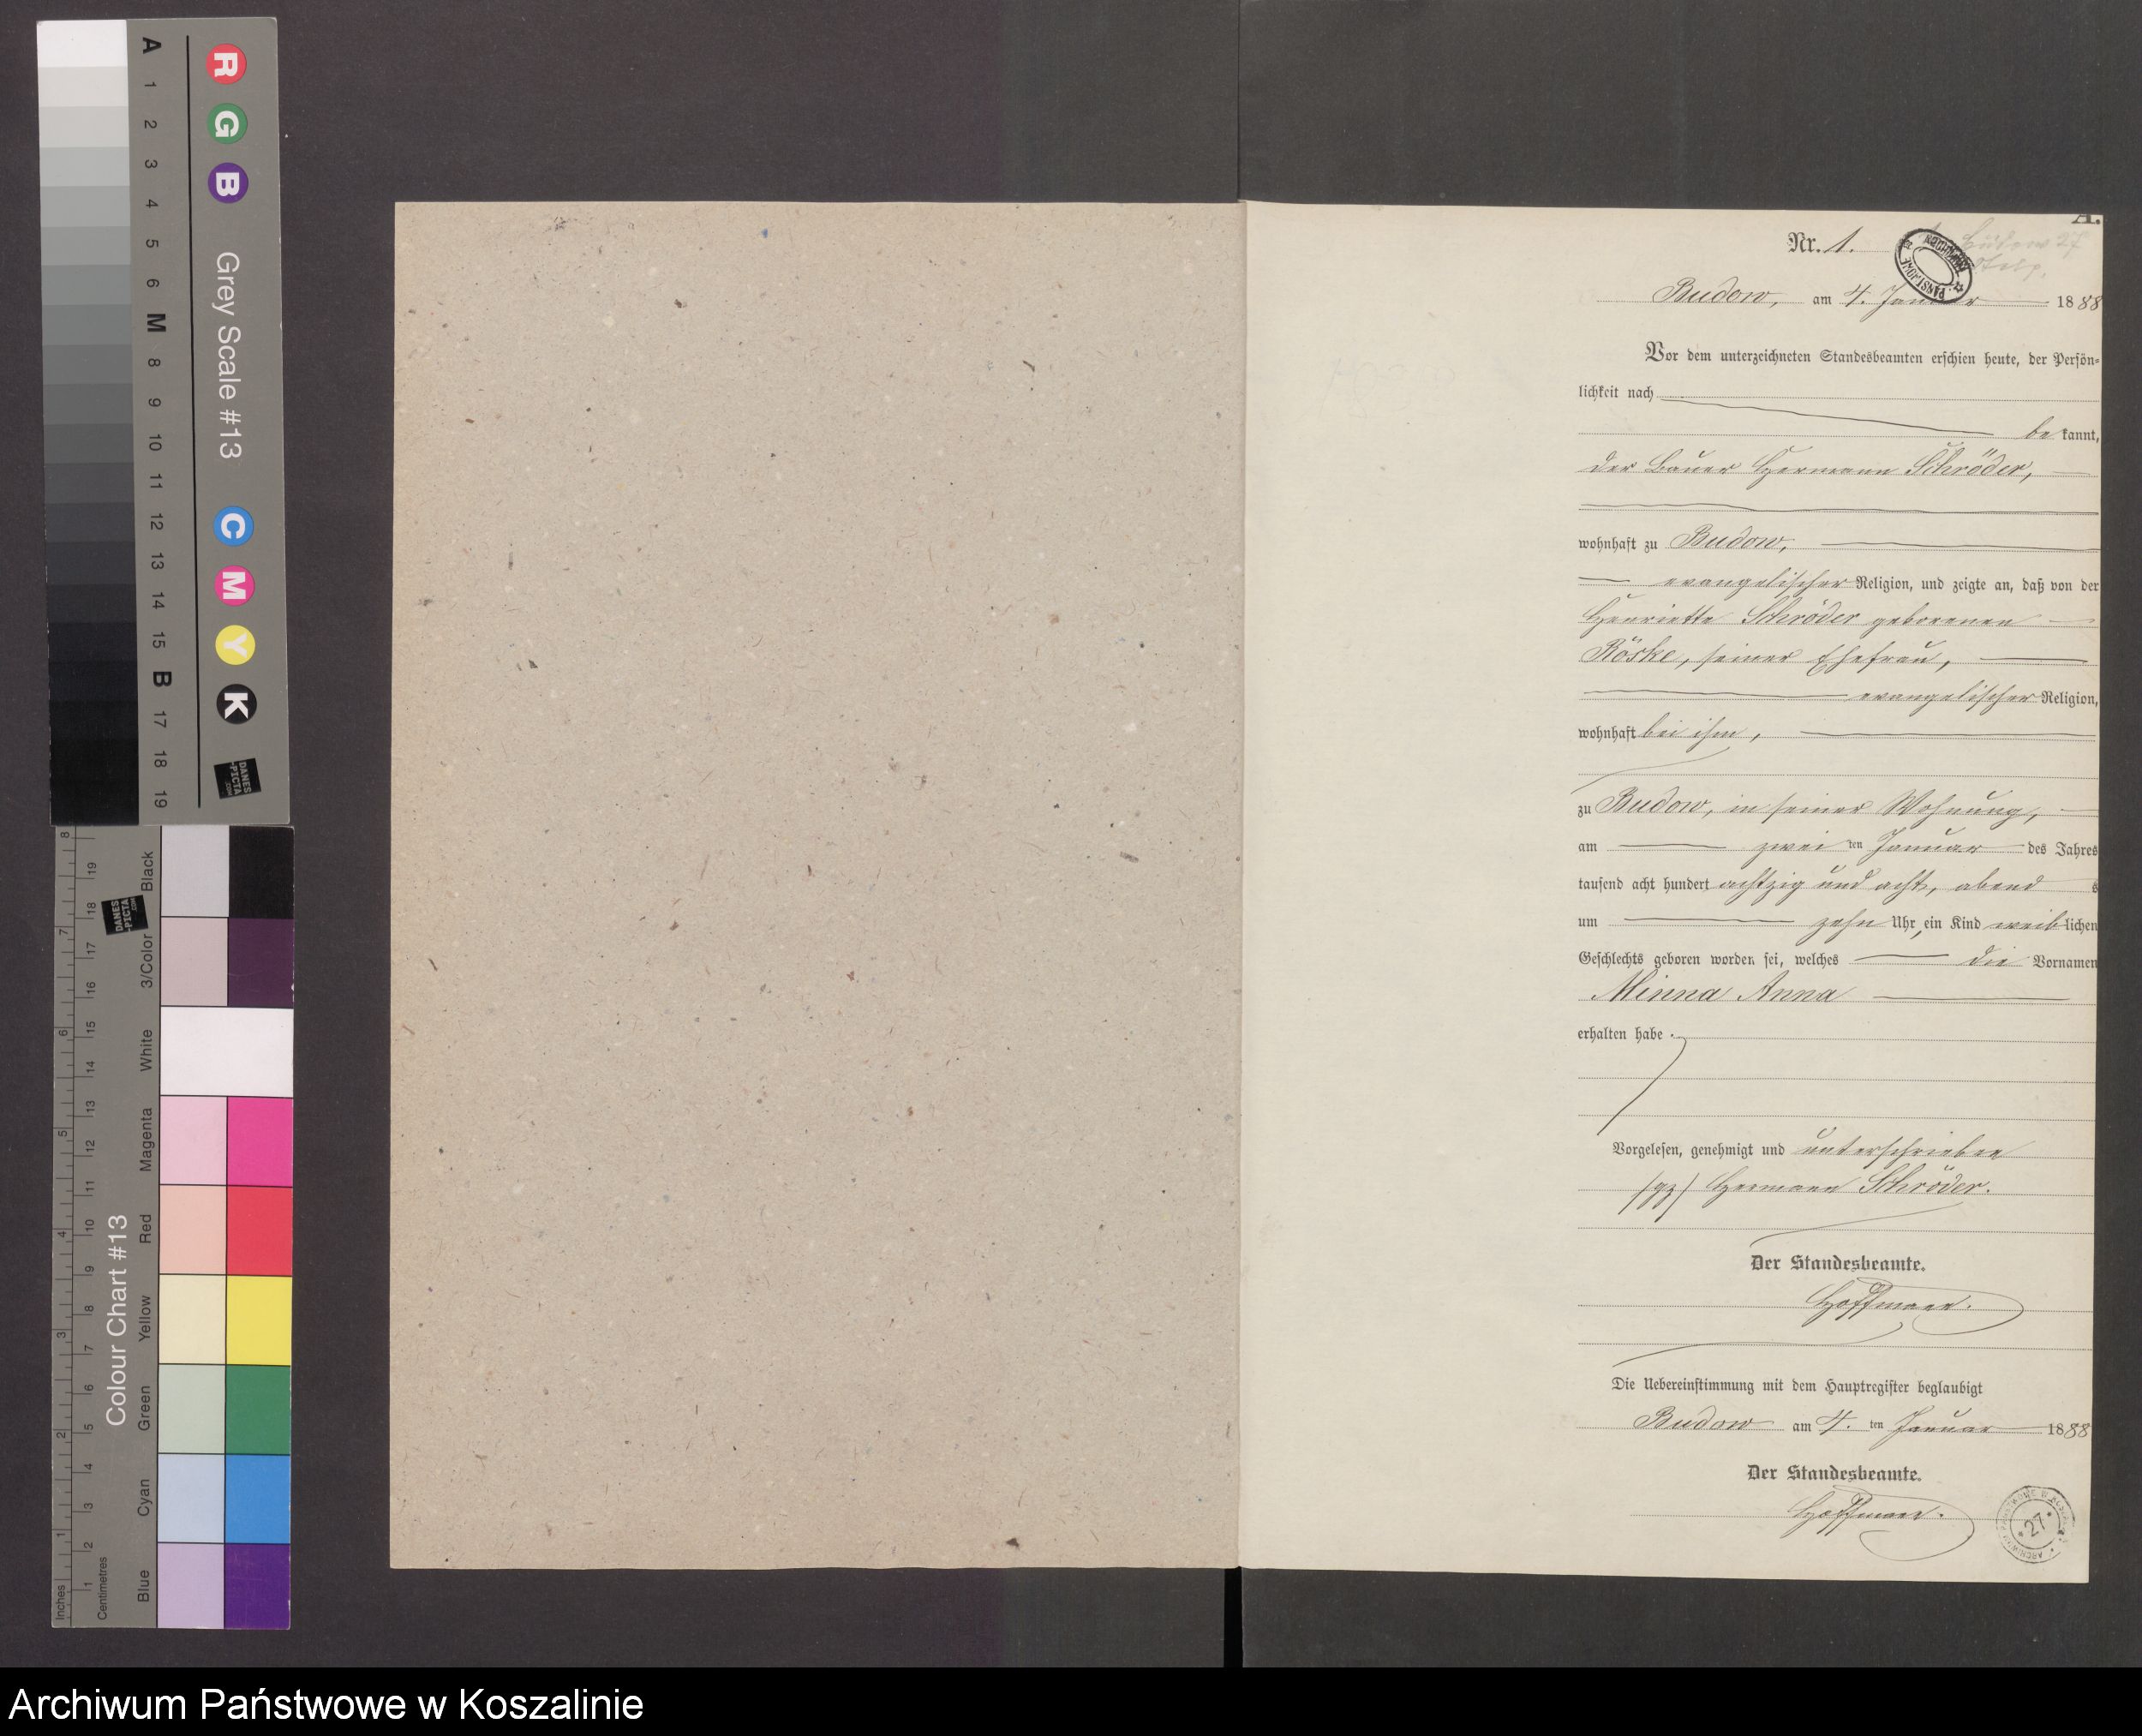 A 1 2 3 4 5 6 M 8 9 10 11 12 13 14 15 B 17 18 19
R G B
Grey Scale #13
C M Y K
DANES
-PICTA
.COM
Colour Chart #13
Black
3/Color
White
Magenta
Red
Yellow
Green
Cyan
Blue
DANES
-PICTA
.COM
8 7 6 5 4 3 2 1
19 18 17 16 15 14 13 12 11 10 9 8 7 6 5 4 3 2 1
Inches
Centimetres
A.
Nr. 1.
Budow, am 4. Januar 1888
Vor dem unterzeichneten Standesbeamten erschien heute, der Persön-
lichkeit nach
bekannt,
der Bauer Hermann Schröder,
wohnhaft zu Budow,
evangelischer Religion, und zeigte an, daß von der
Henriette Schröder geborenen
Röske, seiner Ehefrau,
evangelischer Religion,
wohnhaft bei ihm,
zu Budow, in seiner Wohnung,
am zweiten Januar des Jahres
tausend acht hundert achtzig und acht, abends
um zehn Uhr, ein Kind weiblichen
Geschlechts geboren worden sei, welches die Vornamen
Minna Anna
erhalten habe.
Vorgelesen, genehmigt und unterschrieben
(gz) Hermann Schröder.
Der Standesbeamte.
Hoffmann.
Die Uebereinstimmung mit dem Hauptregister beglaubigt
Budow am 4. ten Januar 1888
Der Standesbeamte.
Hoffmann.
27
Archiwum Państwowe w Koszalinie